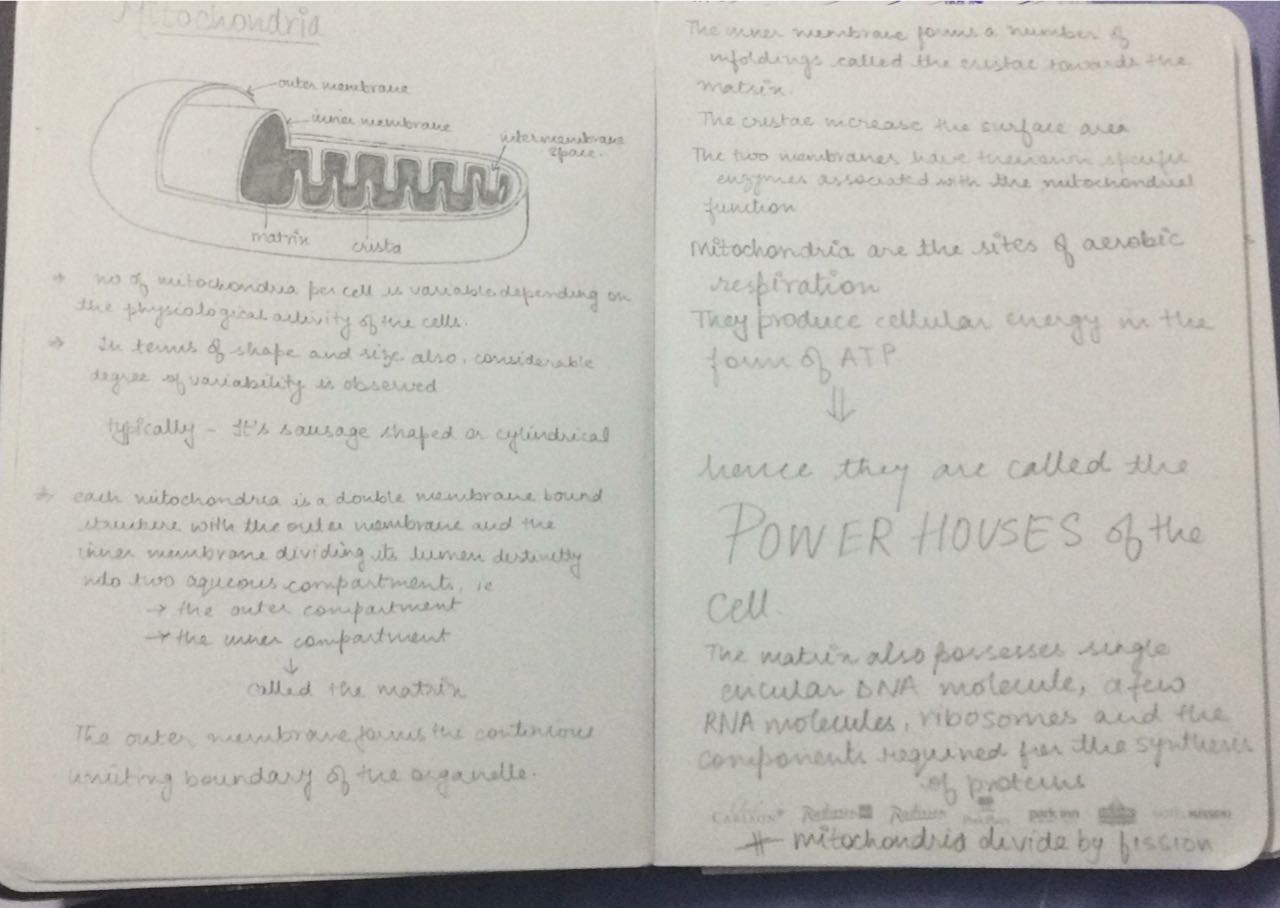 Mitochondria
outer membrane
inner membrane
intermembrane
space.
matrix
crista
→ no of mitochondria per cell is variable depending on
the physiological activity of the cells.
→ In terms of shape and size also, considerable
degree of variability is observed
typically - It's sausage shaped or cylindrical
→ each mitochondria is a double membrane bound
structure with the outer membrane and the
inner membrane dividing its lumen distinctly
into two aqueous compartments, ie
→ the outer compartment
→ the inner compartment
↓
called the matrix
The outer membrane forms the continuous
limiting boundary of the organelle.
The inner membrane forms a number of
infoldings called the cristae towards the
matrix.
The cristae increase the surface area
The two membranes have their own specific
enzymes associated with the mitochondrial
function
Mitochondria are the sites of aerobic
respiration
They produce cellular energy in the
form of ATP
⇓
hence they are called the
POWER HOUSES of the
Cell.
The matrix also possesses single
circular DNA molecule, a few
RNA molecules, ribosomes and the
components required for the synthesis
of proteins
CARLSON Radisson Radisson park inn
# mitochondria divide by fission